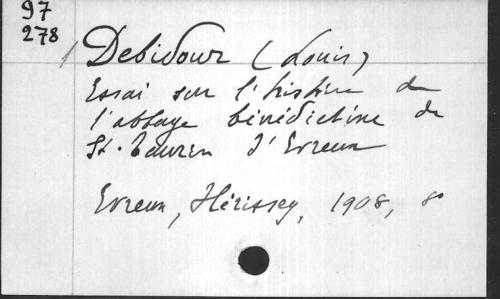 97
278
Debidour (Louis)
Essai sur l'histoire de
l'abbaye bénédictine de
St. Taurin d'Evreux
Evreux, Hérissey, 1908, 8°